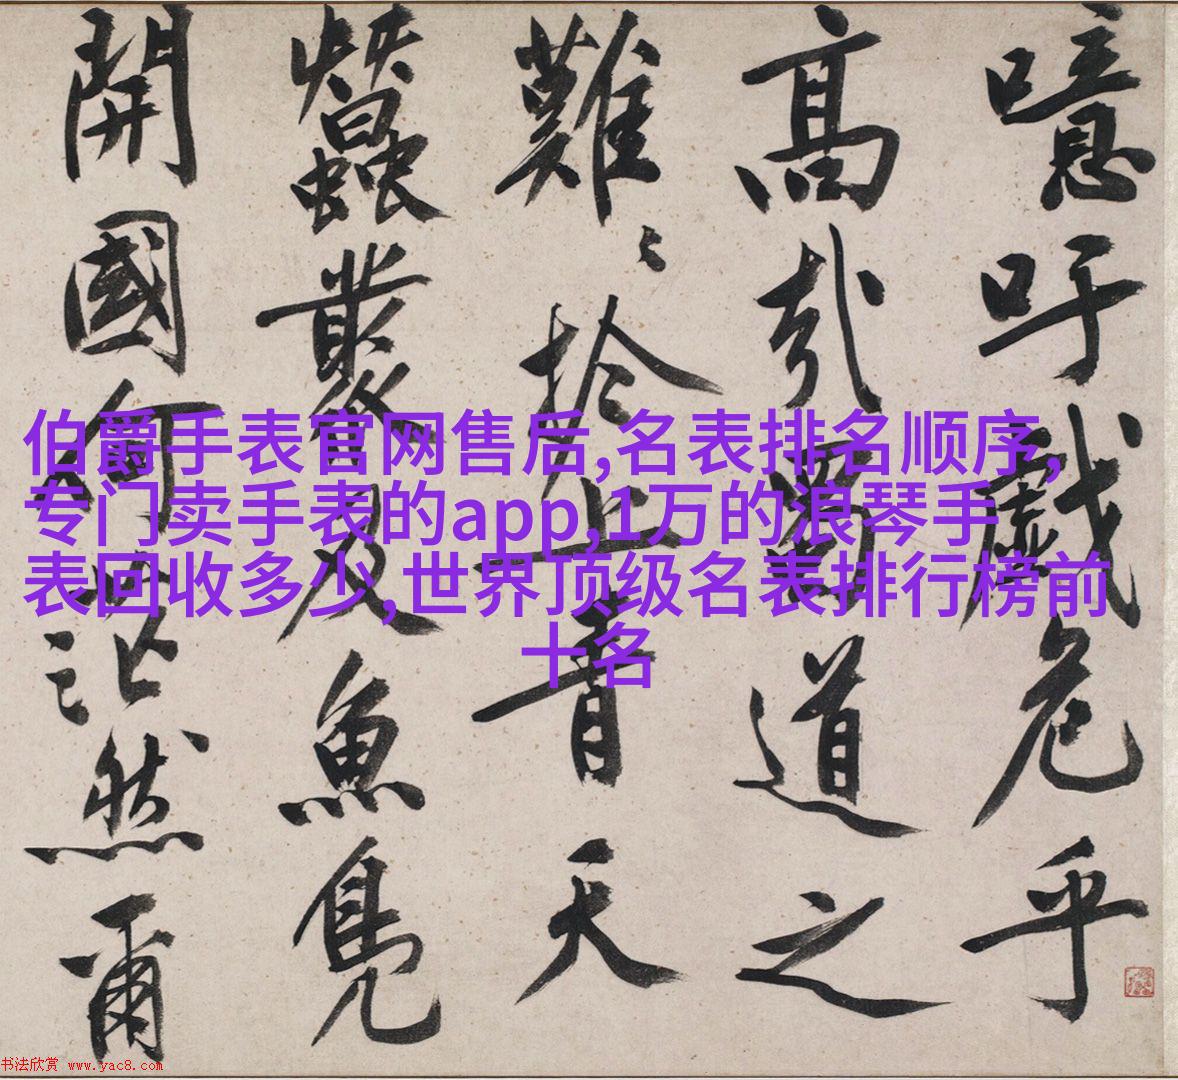 噫吁戲危乎
高哉蜀道之
難〻於上青天
蠶叢及魚鳧
開國何茫然爾
伯爵手表官网售后,名表排名顺序,
专门卖手表的app,1万的浪琴手
表回收多少,世界顶级名表排行榜前
十名
书法欣赏 www.yac8.com